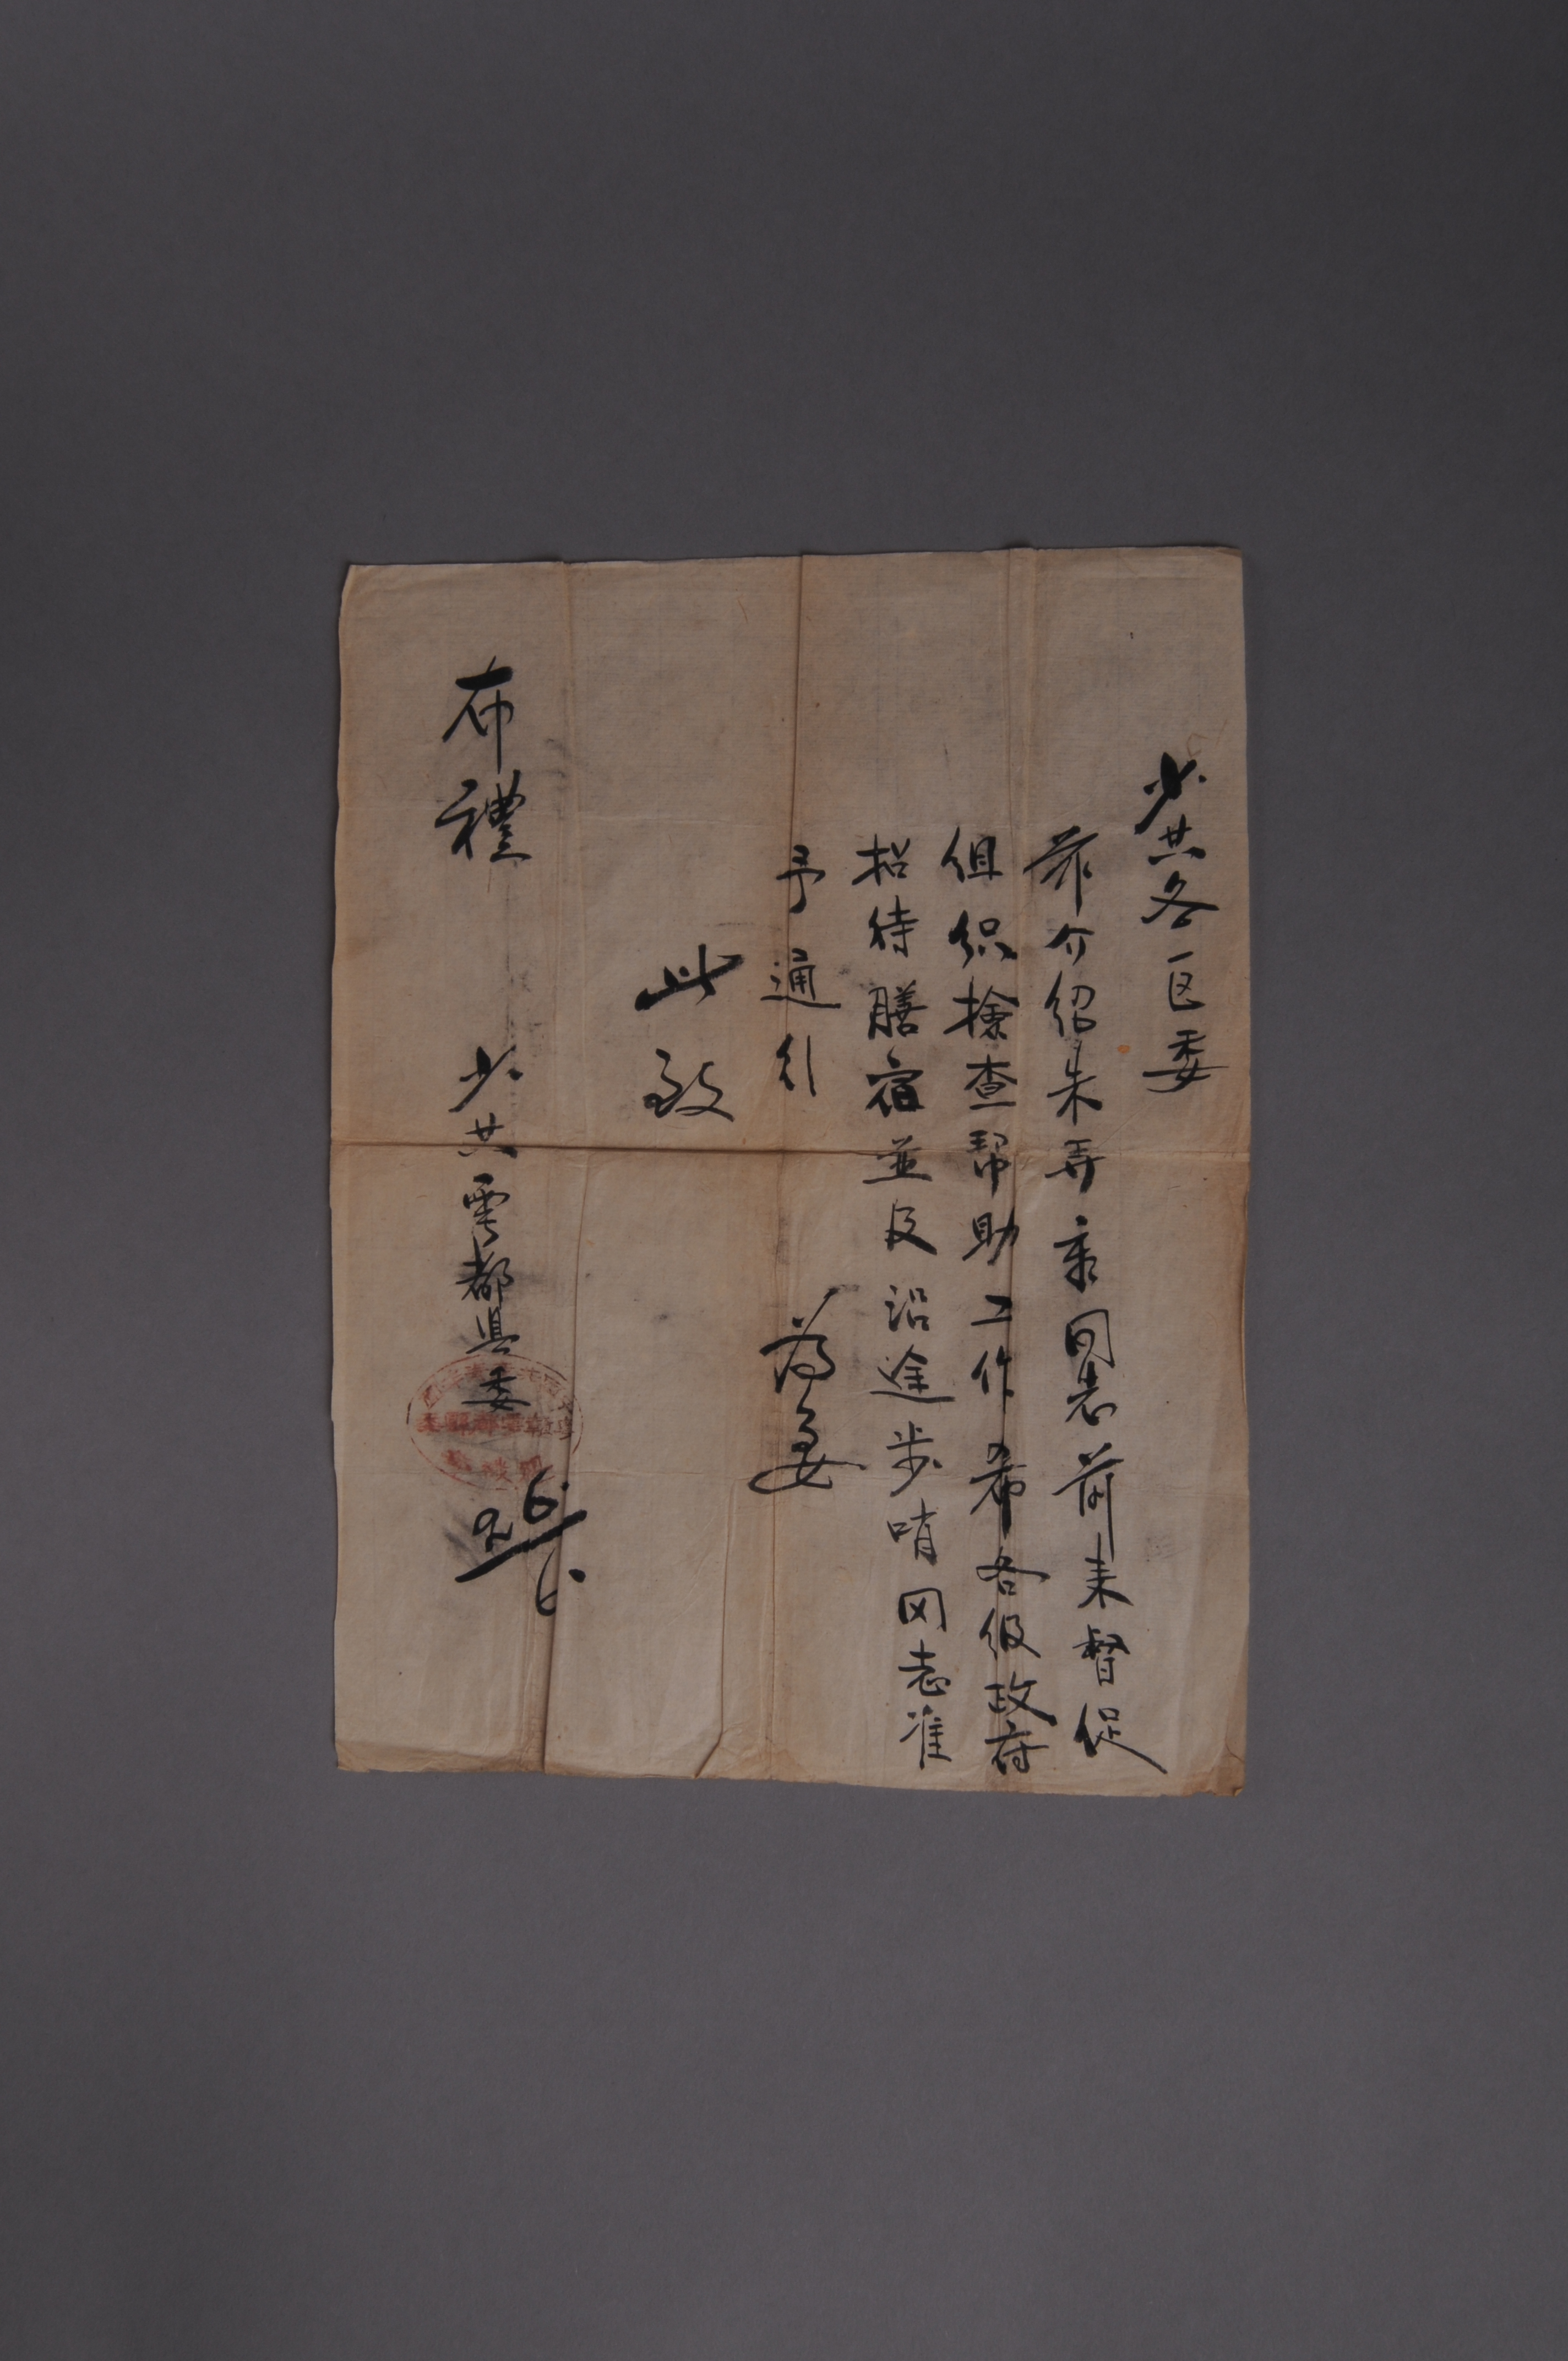 少共各区委
茲介紹朱弄 同志前来督促
组织撿查帮助工作希各级政府
招待膳宿並及沿途步哨同志准
予通行 為要
此致
布禮
少共雩都县委
26/6